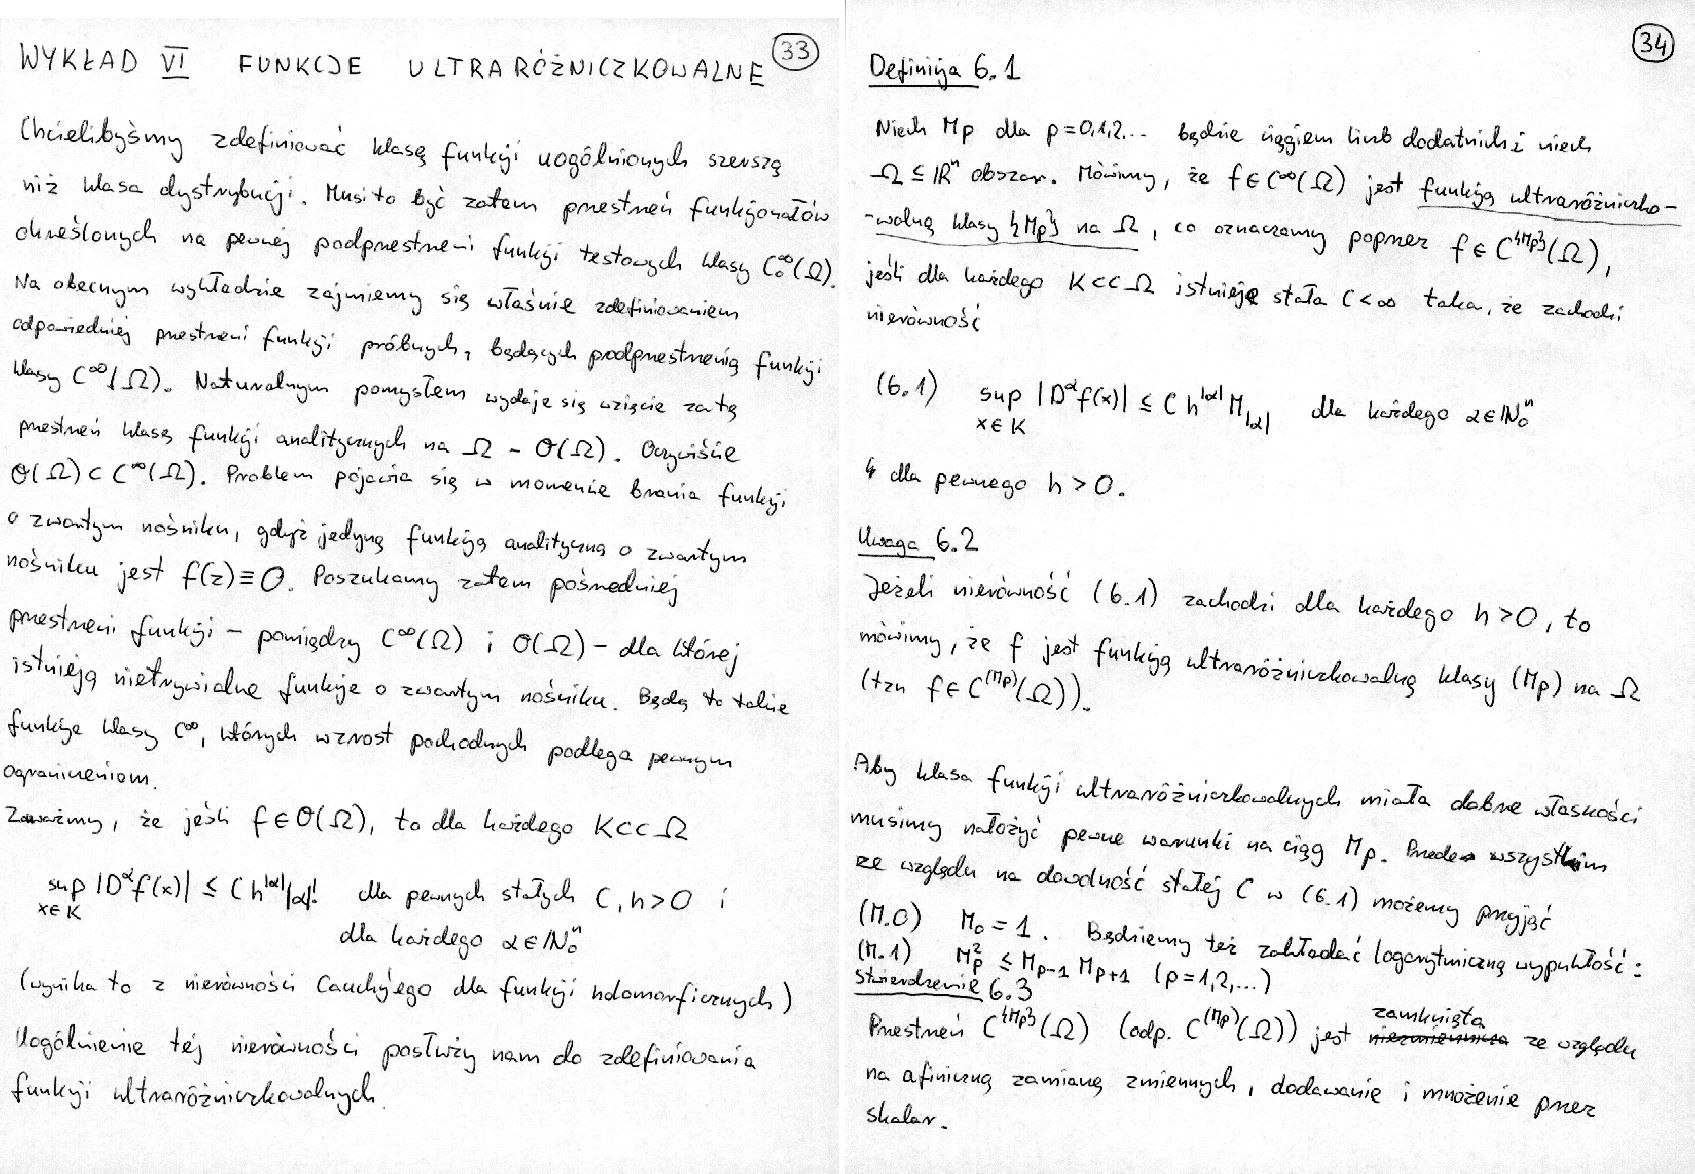 33
WYKŁAD VI FUNKCJE ULTRARÓŻNICZKOWALNE
Chcielibyśmy zdefiniować klasę funkcji uogólnionych szerszą
niż klasa dystrybucji. Musi to być zatem przestrzeń funkcjonałów
określonych na pewnej podprzestrzeni funkcji testowych klasy C₀^∞(Ω).
Na obecnym wykładzie zajmiemy się właśnie zdefiniowaniem
odpowiedniej przestrzeni funkcji próbnych, będących podprzestrzenią funkcji
klasy C^∞(Ω). Naturalnym pomysłem wydaje się wzięcie za tę
przestrzeń klasę funkcji analitycznych na Ω - O(Ω). Oczywiście
O(Ω) ⊂ C^∞(Ω). Problem pojawia się w momencie brania funkcji
o zwartym nośniku, gdyż jedyną funkcją analityczną o zwartym
nośniku jest f(z) ≡ 0. Poszukamy zatem pośredniej
przestrzeni funkcji – pomiędzy C^∞(Ω) i O(Ω) – dla której
istnieją nietrywialne funkcje o zwartym nośniku. Będą to takie
funkcje klasy C^∞, których wzrost pochodnych podlega pewnym
ograniczeniom.
Zauważmy, że jeśli f ∈ O(Ω), to dla każdego K ⊂⊂ Ω
sup |D^α f(x)| ≤ C h^|α| |α|! dla pewnych stałych C, h > 0 i
x∈K
dla każdego α ∈ ℕ₀ⁿ
(wynika to z nierówności Cauchy'ego dla funkcji holomorficznych)
Uogólnienie tej nierówności posłuży nam do zdefiniowania
funkcji ultraróżniczkowalnych.
34
Definicja 6.1
Niech Mp dla p = 0,1,2... będzie ciągiem liczb dodatnich i niech
Ω ⊆ ℝⁿ obszar. Mówimy, że f ∈ C^∞(Ω) jest funkcją ultraróżniczko-
-walną klasy {Mp} na Ω, co oznaczamy poprzez f ∈ C^{Mp}(Ω),
jeśli dla każdego K ⊂⊂ Ω istnieje stała C < ∞ taka, że zachodzi
nierówność
(6.1) sup |D^α f(x)| ≤ C h^|α| M_|α| dla każdego α ∈ ℕ₀ⁿ
x∈K
dla pewnego h > 0.
Uwaga 6.2
Jeżeli nierówność (6.1) zachodzi dla każdego h > 0, to
mówimy, że f jest funkcją ultraróżniczkowalną klasy (Mp) na Ω
(tzn f ∈ C^(Mp)(Ω)).
Aby klasa funkcji ultraróżniczkowalnych miała dobre własności
musimy nałożyć pewne warunki na ciąg Mp. Przede wszystkim
ze względu na dowolność stałej C w (6.1) możemy przyjąć
(M.0) M₀ = 1. Będziemy też zakładać logarytmiczną wypukłość:
(M.1) M_p² ≤ M_{p-1} M_{p+1} (p = 1,2,...)
Stwierdzenie 6.3
Przestrzeń C^{Mp}(Ω) (odp. C^(Mp)(Ω)) jest zamknięta ze względu
na afiniczną zamianę zmiennych, dodawanie i mnożenie przez
skalar.